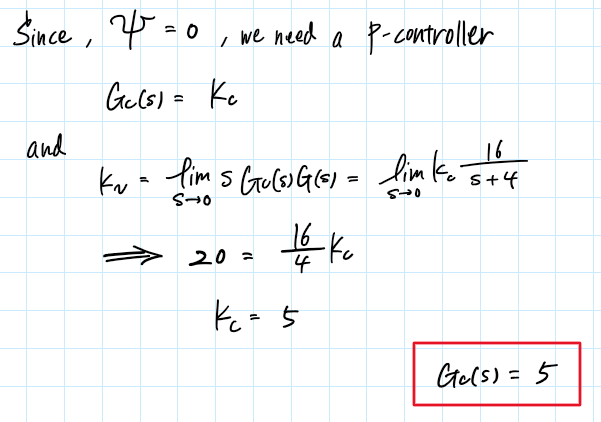 Since, Ψ = 0, we need a P-controller
Gc(s) = Kc
and
Kv = lim s→0 s Gc(s)G(s) = lim s→0 Kc 16/(s+4)
⟹ 20 = 16/4 Kc
Kc = 5
Gc(s) = 5